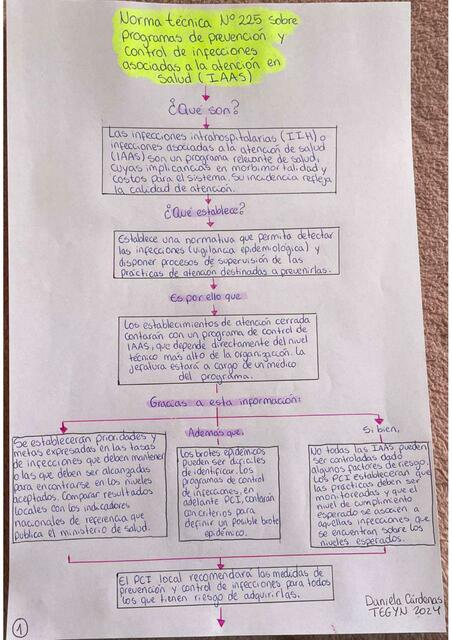 Norma técnica Nº 225 sobre
programas de prevención y
control de infecciones
asociadas a la atención en
salud (IAAS)
¿Qué son?
Las infecciones intrahospitalarias (IIH) o
infecciones asociadas a la atención de salud
(IAAS) son un programa relevante de salud,
cuyas implicancias en morbimortalidad y
costos para el sistema. Su incidencia refleja
la calidad de atención.
¿Qué establece?
Establece una normativa que permita detectar
las infecciones (vigilancia epidemiológica) y
disponer procesos de supervisión de las
prácticas de atención destinadas a prevenirlas.
Es por ello que
Los establecimientos de atención cerrada
contarán con un programa de control de
IAAS, que depende directamente del nivel
técnico más alto de la organización. La
jefatura estará a cargo de un médico
del programa.
Gracias a esta información:
Se establecerán prioridades y
metas expresadas en las tasas
de infecciones que deben mantener
o las que deben ser alcanzadas
para encontrarse en los niveles
aceptados. Comparar resultados
locales con los indicadores
nacionales de referencia que
publica el ministerio de salud.
Además que,
Los brotes epidémicos
pueden ser difíciles
de identificar. Los
programas de control
de infecciones, en
adelante PCI, contarán
con criterios para
definir un posible brote
epidémico.
Si bien,
No todas las IAAS pueden
ser controladas dado
algunos factores de riesgo.
Los PCI establecerán que
las prácticas deben ser
monitoreadas y que el
nivel de cumplimiento
esperado se asocien a
aquellas infecciones que
se encuentran sobre los
niveles esperados.
El PCI local recomendará las medidas de
prevención y control de infecciones para todos
los que tienen riesgo de adquirirlas.
Daniela Cárdenas
TEGYN 2024
1